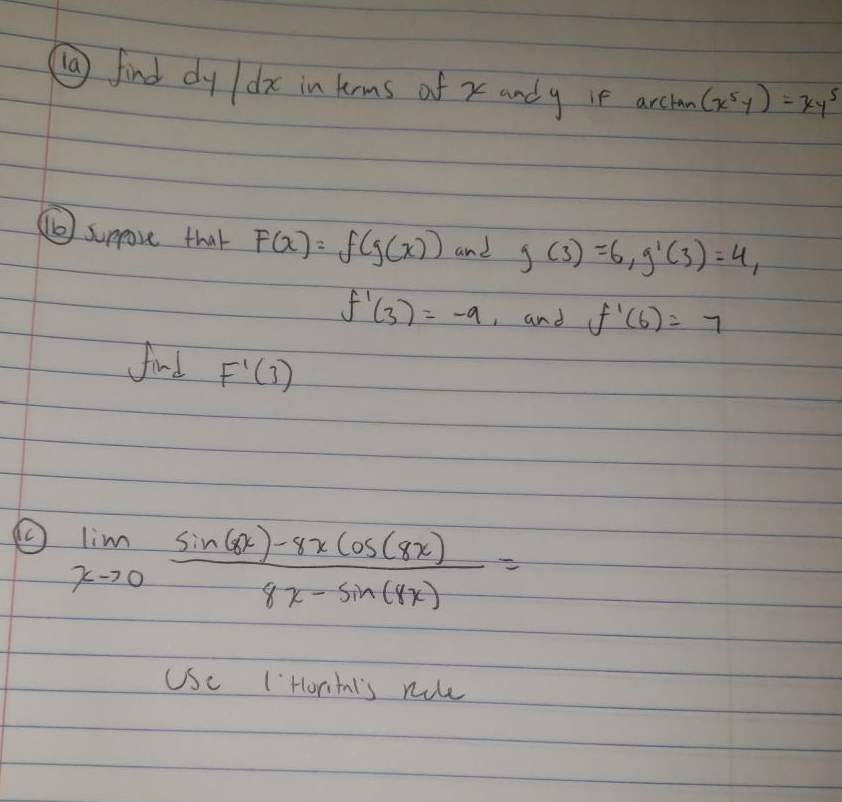 1a find dy/dx in terms of x and y if arctan(x⁵y) = xy⁵
1b suppose that F(x) = f(g(x)) and g(3) = 6, g'(3) = 4,
f'(3) = -9, and f'(6) = 7
find F'(3)
1c lim x→0 sin(8x) - 8x cos(8x) / 8x - sin(8x) =
Use l'Hopital's rule